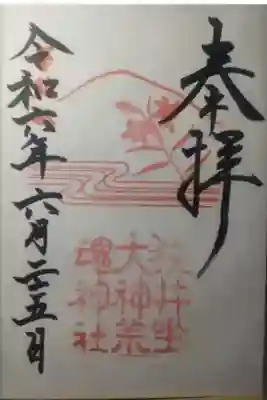 奉拝
狭井坐
大神荒
魂神社
令和六年六月二五日